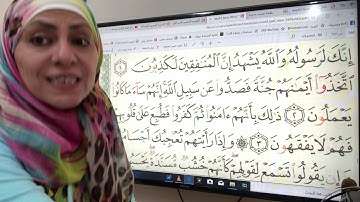 إِنَّكَ لَرَسُولُهُۥ وَٱللَّهُ يَشْهَدُ إِنَّ ٱلْمُنَٰفِقِينَ لَكَٰذِبُونَ ١
ٱتَّخَذُوٓا۟ أَيْمَٰنَهُمْ جُنَّةً فَصَدُّوا۟ عَن سَبِيلِ ٱللَّهِ إِنَّهُمْ سَآءَ مَا كَانُوا۟
يَعْمَلُونَ ٢ ذَٰلِكَ بِأَنَّهُمْ ءَامَنُوا۟ ثُمَّ كَفَرُوا۟ فَطُبِعَ عَلَىٰ قُلُوبِهِمْ
فَهُمْ لَا يَفْقَهُونَ ٣ ۞ وَإِذَا رَأَيْتَهُمْ تُعْجِبُكَ أَجْسَامُ
وَإِن يَقُولُوا۟ تَسْمَعْ لِقَوْلِهِمْ كَأَنَّهُمْ خُشُبٌ مُّسَنَّدَةٌ يَحْسَبُ